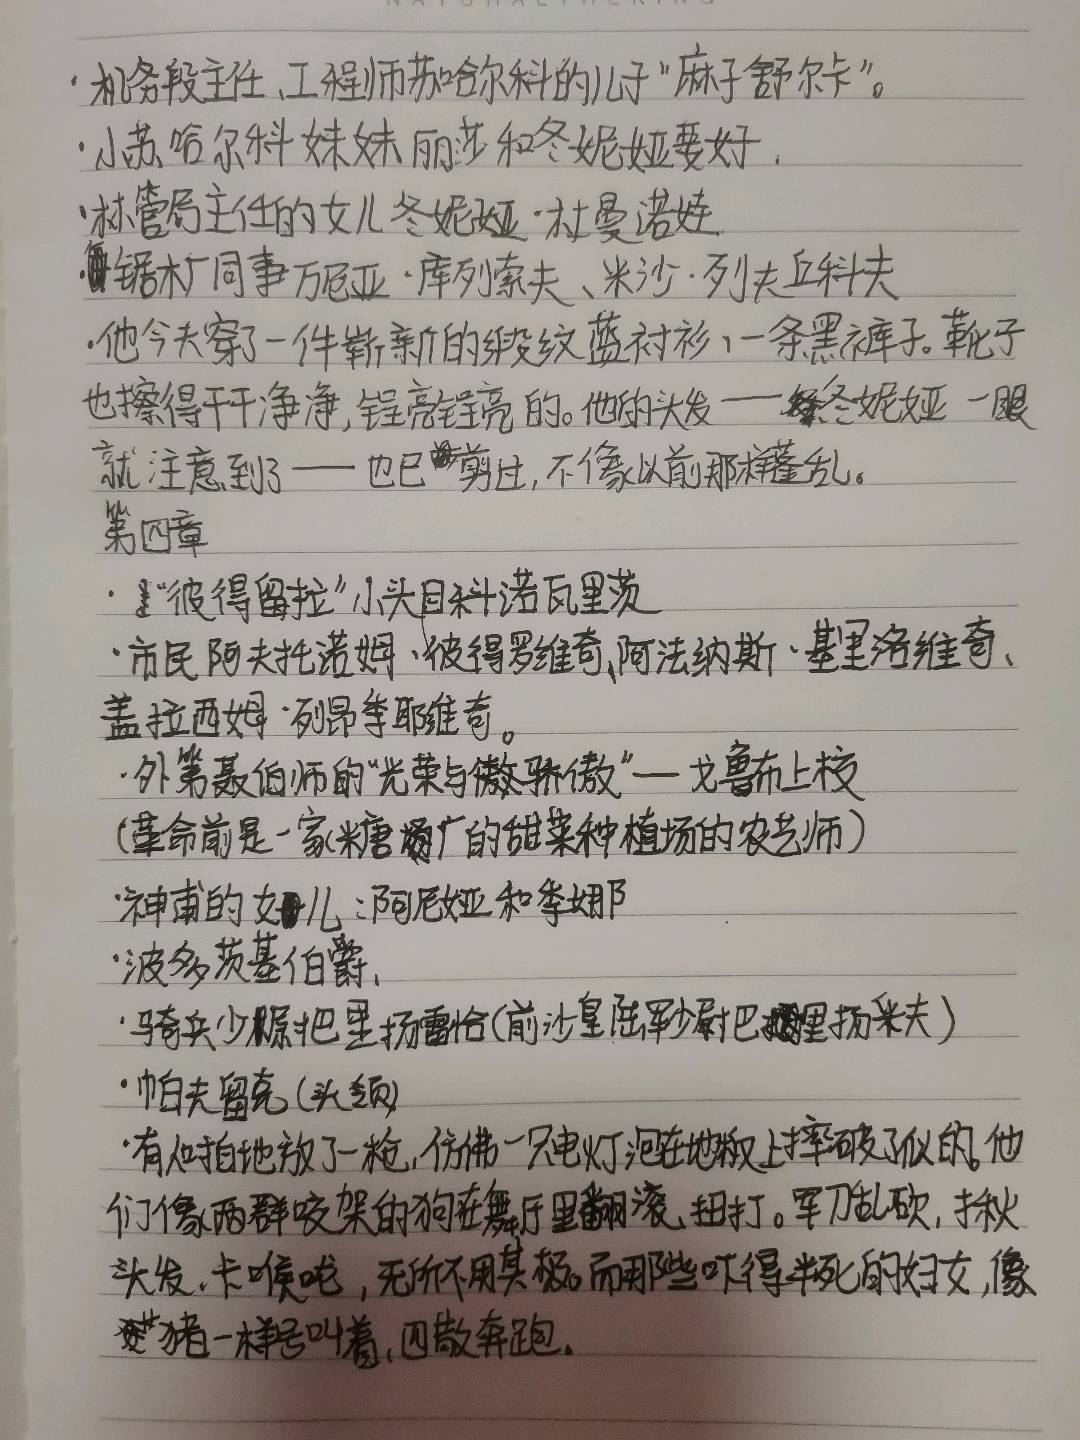 NATURALTHEKING
·机务段主任、工程师苏哈尔科的儿子“麻子舒尔卡”。
·小苏哈尔科妹妹丽莎和冬妮娅要好.
·林管局主任的女儿冬妮娅·杜曼诺娃
·锯木厂同事万尼亚·库列索夫、米沙·列夫丘科夫
·他今天穿了一件崭新的缎纹蓝衬衫、一条黑裤子。靴子
也擦得干干净净,锃亮锃亮的。他的头发——冬妮娅一眼
就注意到了——也已剪过,不像以前那样蓬乱。
第四章
·“彼得留拉”小头目科诺瓦里茨
·市民阿夫托诺姆·彼得罗维奇、阿法纳斯·基里洛维奇、
盖拉西姆·列昂季耶维奇。
·外第聂伯师的“光荣与骄傲”—戈鲁布上校
(革命前是一家糖厂的甜菜种植场的农艺师)
·神甫的女儿:阿尼娅和季娜
·波多茨基伯爵.
·骑兵少尉把里扬雷恰(前沙皇陆军少尉巴里扬采夫)
·帕夫留克(头领)
·有人啪地放了一枪,仿佛一只电灯泡在地板上摔破了似的。他
们像两群咬架的狗在舞厅里翻滚、扭打。军刀乱砍,揪
头发、卡喉咙,无所不用其极。而那些吓得半死的妇女,像
猪一样号叫着、四散奔跑.